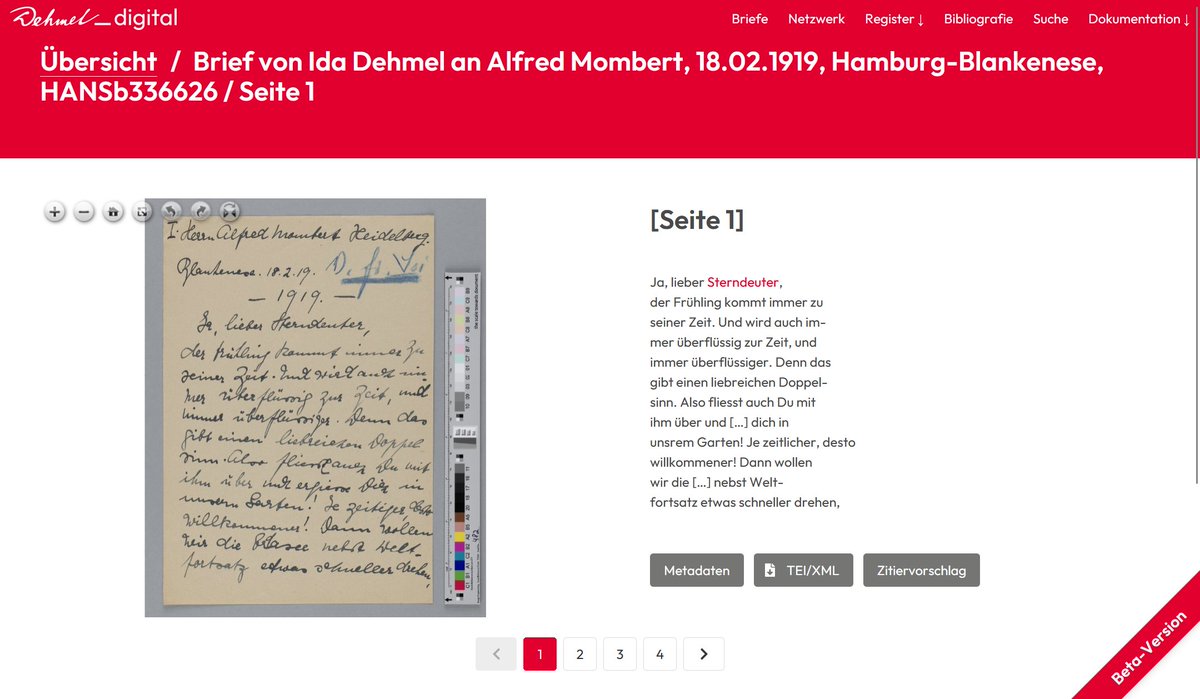 Dehmel_digital
Briefe Netzwerk Register ↓ Bibliografie Suche Dokumentation ↓
Übersicht / Brief von Ida Dehmel an Alfred Mombert, 18.02.1919, Hamburg-Blankenese,
HANSb336626 / Seite 1
I. Herrn Alfred Mombert Heidelberg.
Blankenese. 18.2.19.
— 1919. —
Ja, lieber Sterndeuter,
der Frühling kommt immer zu
seiner Zeit. Und wird auch im-
mer überflüssig zur Zeit, und
immer überflüssiger. Denn das
gibt einen liebreichen Doppel-
sinn. Also fliesst auch Du mit
ihm über und ergiesse Dich in
unserm Garten! Je zeitiger, desto
willkommener! Dann wollen
wir die nebst Welt-
fortsatz etwas schneller drehen,
[Seite 1]
Ja, lieber Sterndeuter,
der Frühling kommt immer zu
seiner Zeit. Und wird auch im-
mer überflüssig zur Zeit, und
immer überflüssiger. Denn das
gibt einen liebreichen Doppel-
sinn. Also fliesst auch Du mit
ihm über und [...] dich in
unsrem Garten! Je zeitlicher, desto
willkommener! Dann wollen
wir die [...] nebst Welt-
fortsatz etwas schneller drehen,
Metadaten TEI/XML Zitiervorschlag
1 2 3 4
Beta-Version